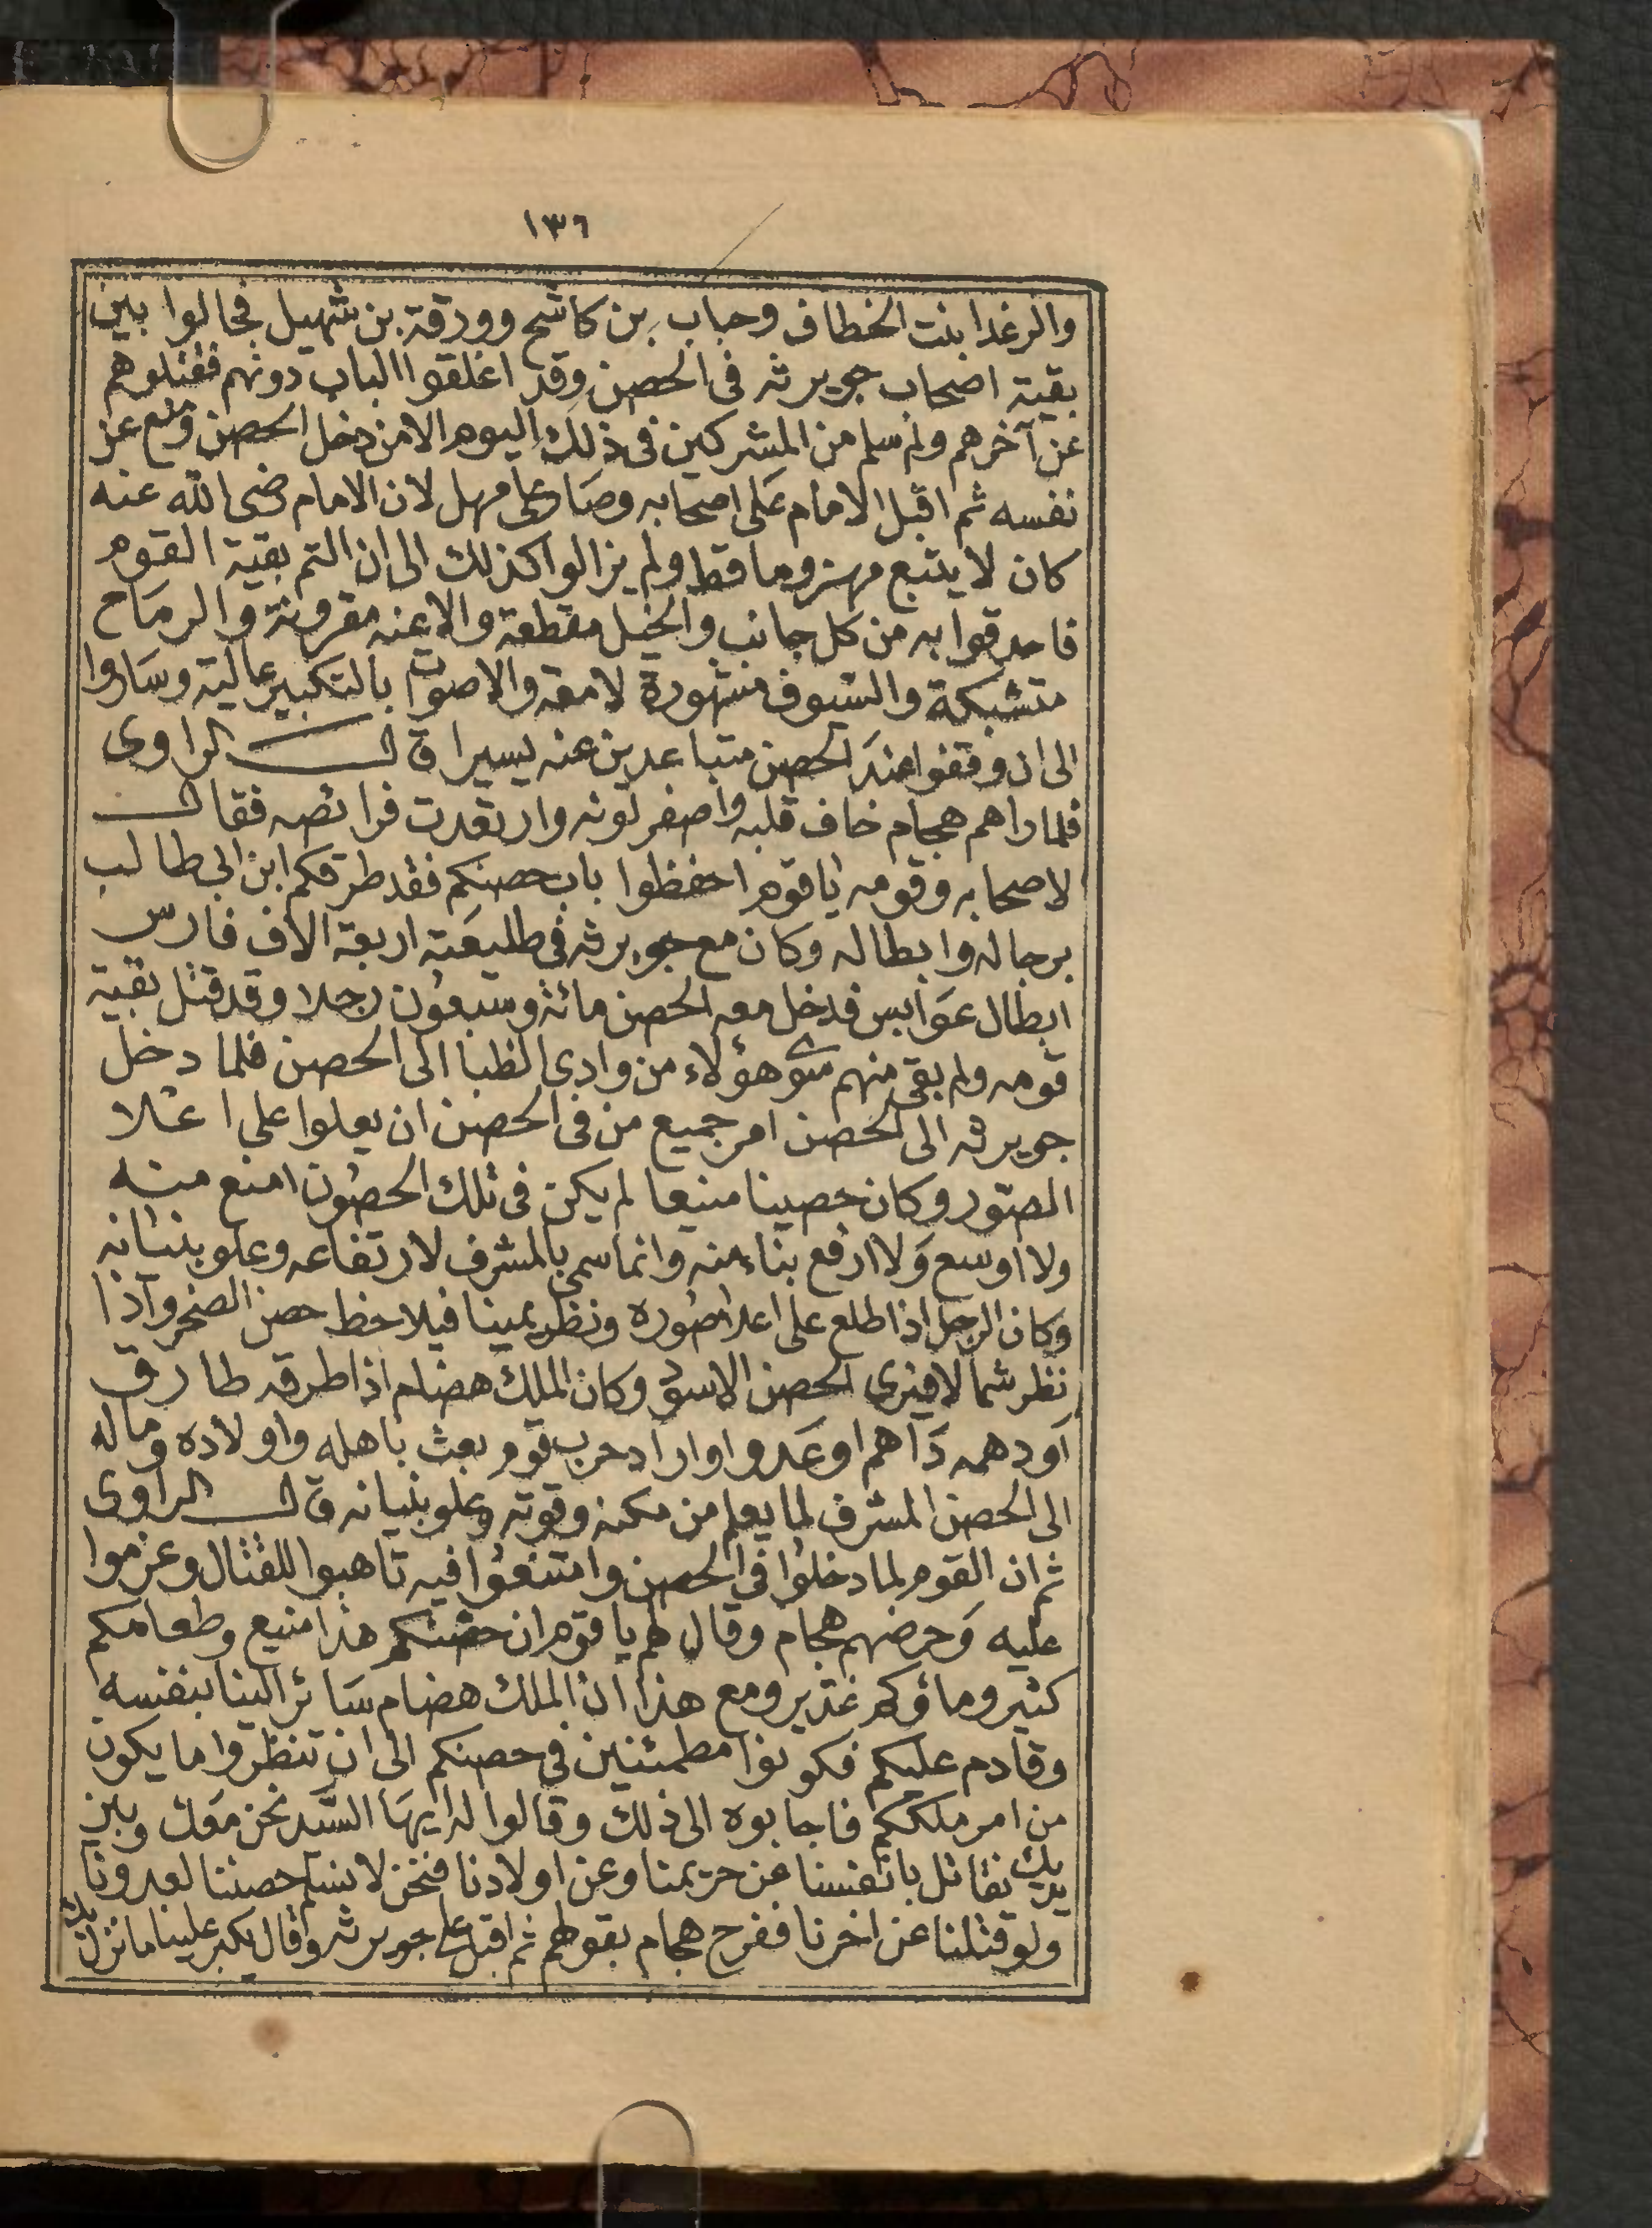 ١٣٦
والرغدا بنت الخطاف وحباب بن كاشح وورقة بن شهيل فجالوا بين
بقية اصحاب جويرثه فى الحصن وقد اغلقوا الباب دونهم فقتلوهم
عن آخرهم ولم يسلم من المشركين فى ذلك اليوم الا من دخل الحصن ومنع عن
نفسه ثم اقبل الامام على اصحابه وصار على مهل لان الامام رضى الله عنه
كان لا يتبع مهزوما قط ولم يزالوا كذلك الى ان التم بقية القوم
فاحدقوا به من كل جانب والخيل مقطعة والاعنه مقرونة والرماح
متشبكة والسيوف مشهورة لامعه والاصوات بالتكبير عالية وساروا
الى ان وقفوا عند الحصن متباعدين عنه يسيرا قال الراوى
فلما راهم هجام خاف قلبه واصفر لونه وارتعدت فرائصه فقال
لاصحابه وقومه ياقوم احفظوا باب حصنكم فقد طرقكم ابن ابى طالب
برجاله وابطاله وكان مع جويرثه فى طليعته اربعة الاف فارس
ابطال عوابس فدخل معه الحصن مائة وسبعون رجلا وقد قتل بقية
قومه ولم يبقى منهم سوى هؤلاء من وادى الظبا الى الحصن فلما دخل
جويرثه الى الحصن امر جميع من فى الحصن ان يعلوا على اعلا
الصور وكان حصينا منيعا لم يكن فى تلك الحصون امنع منه
ولا اوسع ولا ارفع بناء منه وانما سمى بالمشرف لارتفاعه وعلو بنيانه
وكان الرجل اذا طلع على اعلا صوره ونظر يمينا فيلاحظ حصن الصخر واذا
نظر شمالا فيرى الحصن الاسود وكان الملك هضام اذا طرقه طارق
او دهمه داهم او عدو او اراد حرب قوم بعث باهله واولاده وماله
الى الحصن المشرف لما يعلم من مكنه وقوته وعلو بنيانه قال الراوى
ثم ان القوم لما دخلوا فى الحصن وامتنعوا فيه تاهبوا للقتال وعزموا
عليه وحرضهم هجام وقال لهم يا قوم ان حصنكم هذا منيع وطعامكم
كثير وماؤكم غدير ومع هذا ان الملك هضام سائر الينا بنفسه
وقادم عليكم فكونوا مطمئنين فى حصنكم الى ان تنظروا ما يكون
من امر ملككم فاجابوه الى ذلك وقالوا له ايها السيد نحن معك وبين
يديك نقاتل بانفسنا عن حريمنا وعن اولادنا فنحن لا نسلم حصننا لعدونا
ولو قتلنا عن اخرنا ففرح هجام بقولهم ثم اقبل على جويرثه وقال يكبر علينا ما نزل بك